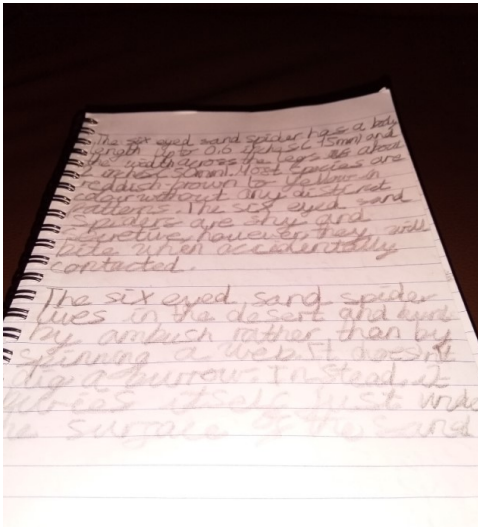 The six eyed sand spider has a body
length up to 0.6 inches (15mm) and
the width across the legs is about
2 inches (50mm). Most species are
reddish-brown to yellowish
colour without any distinct
patterns. The six eyed sand
spiders are shy and
secretive, however they will
bite when accidentally
contacted.
The six eyed sand spider
lives in the desert and hunt
by ambush rather than by
spinning a web. It doesn't
dig a burrow. Instead, it
buries itself just unde
the surface of the sand